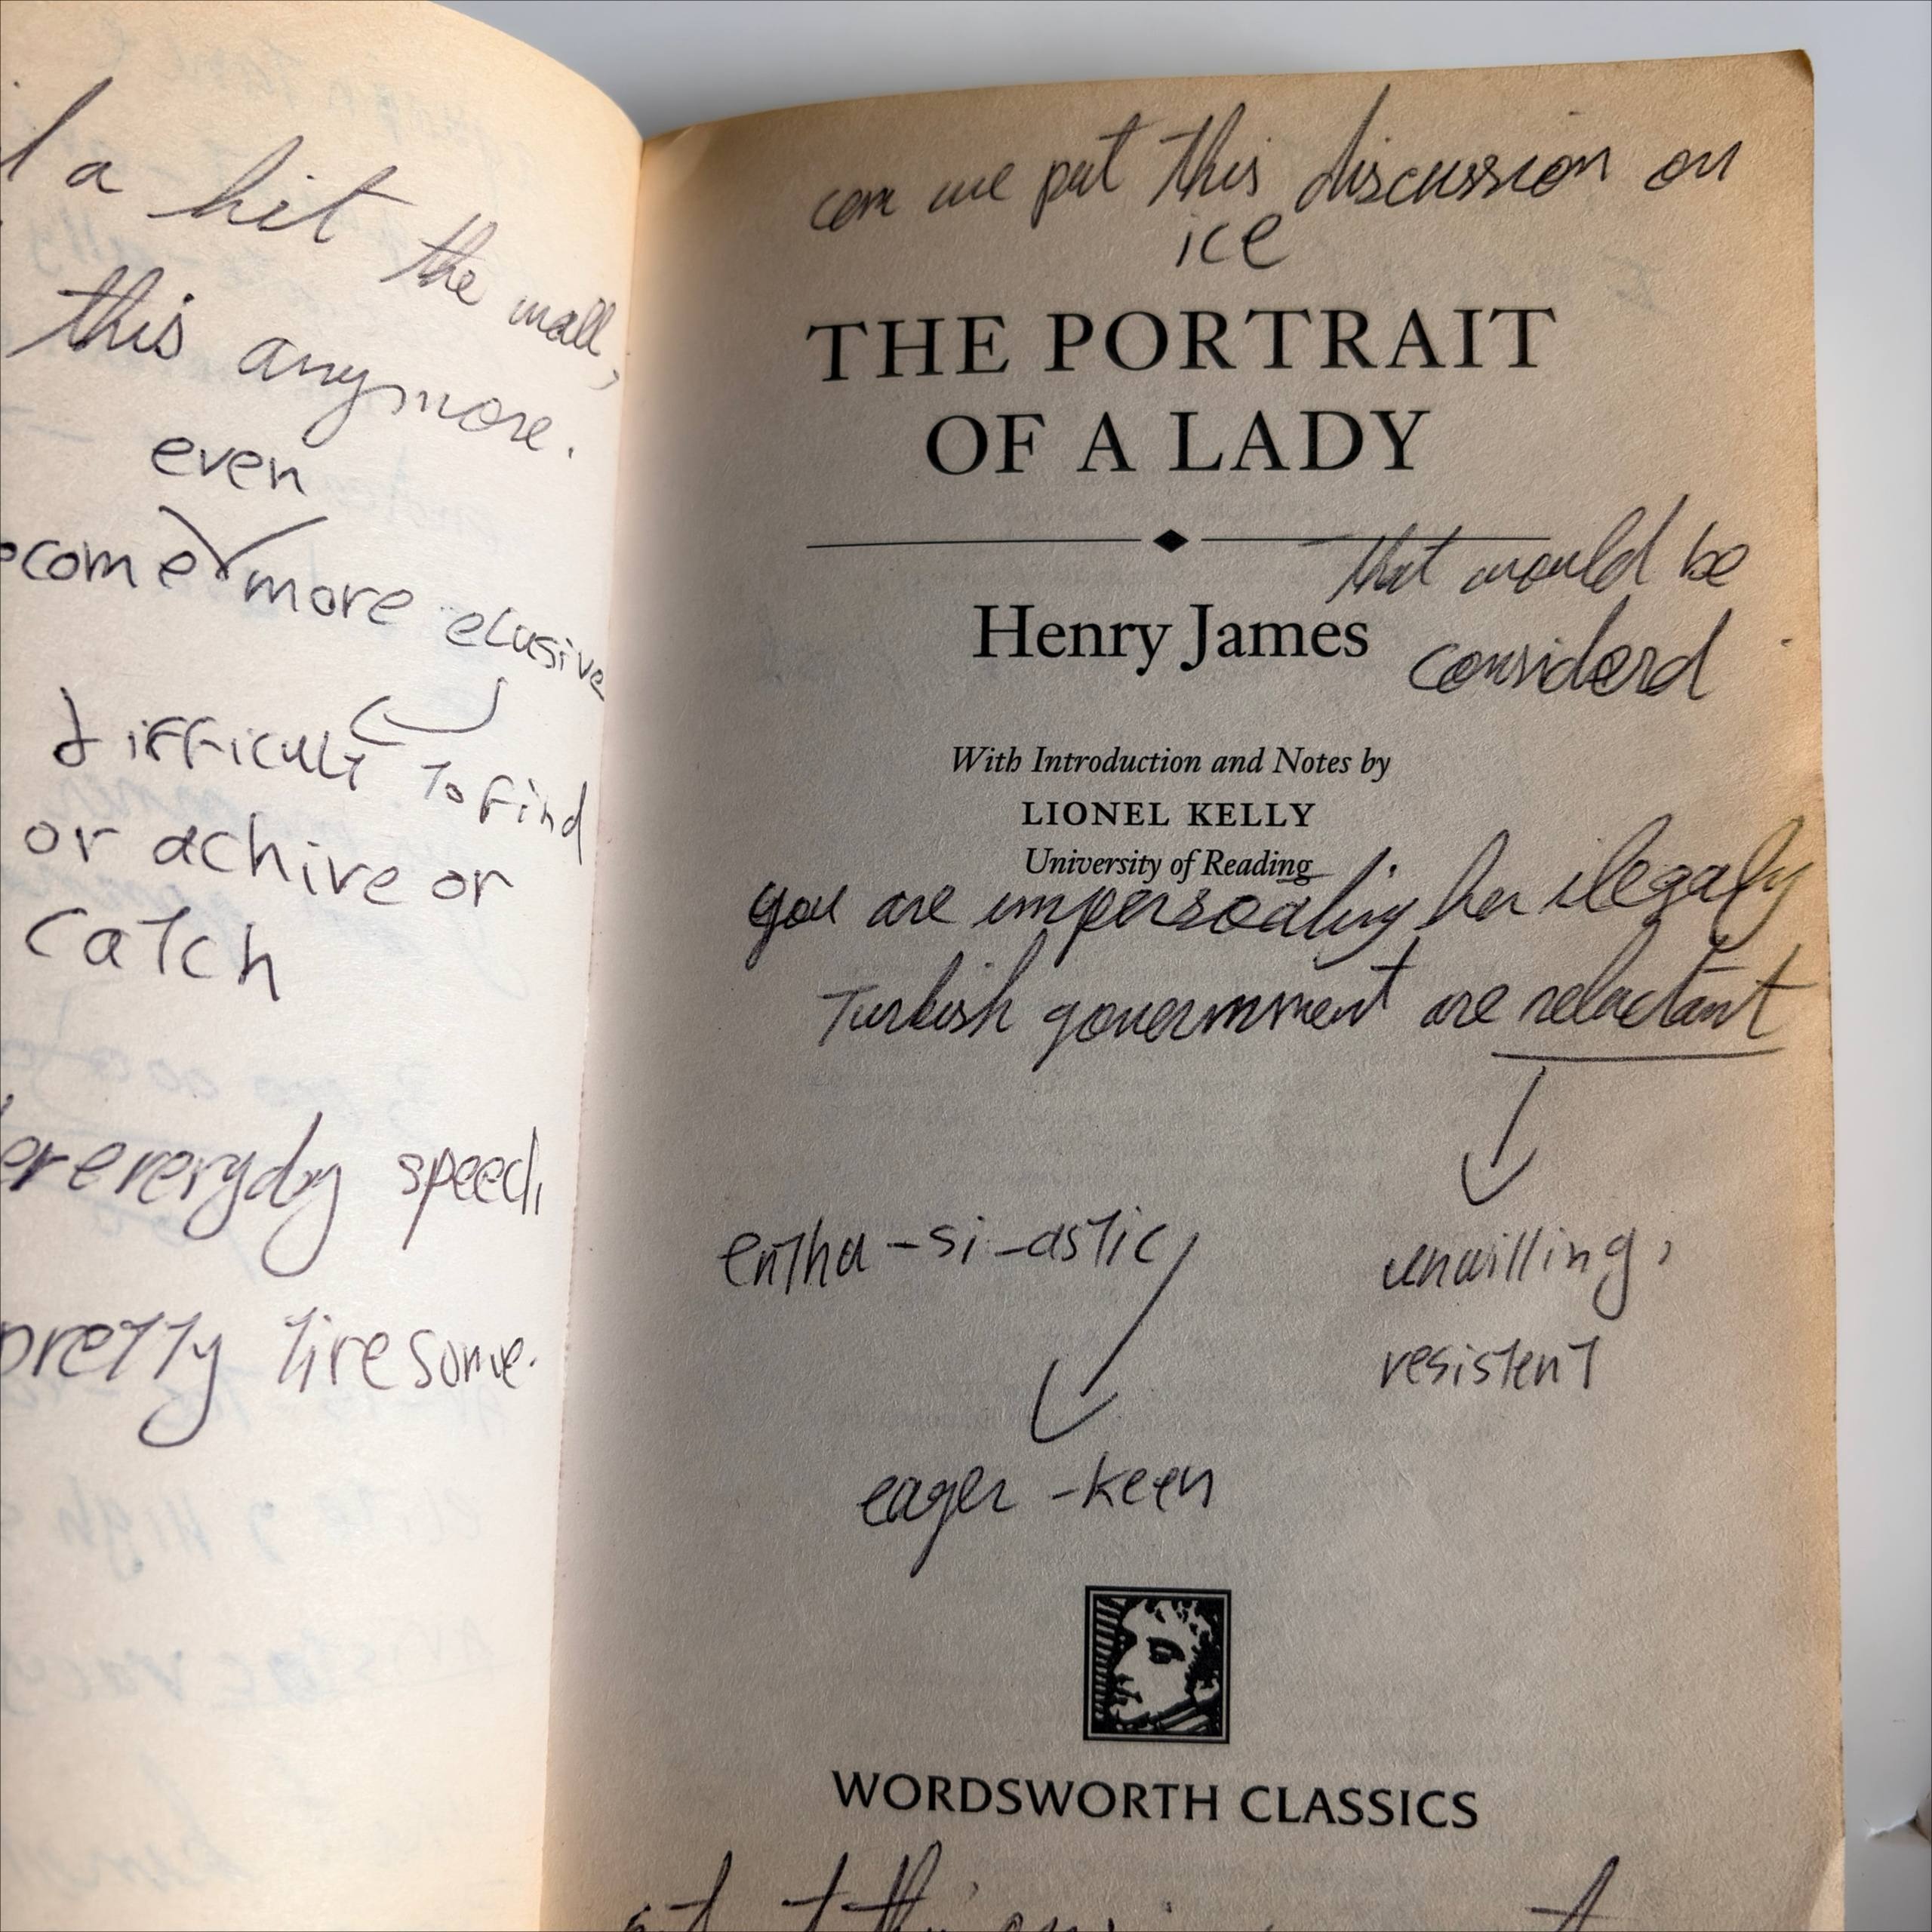 a hit the wall,
this anymore.
even
more elusive
difficult to find
or achive or
catch
everyday speech,
pretty tiresome.
can we put this discussion on
ice
THE PORTRAIT
OF A LADY
that would be
Henry James
considerd
With Introduction and Notes by
LIONEL KELLY
University of Reading
you are her ilegaly
Turkish government are reluctant
enthu-si-astic
unwilling,
resistent
eager - keen
WORDSWORTH CLASSICS